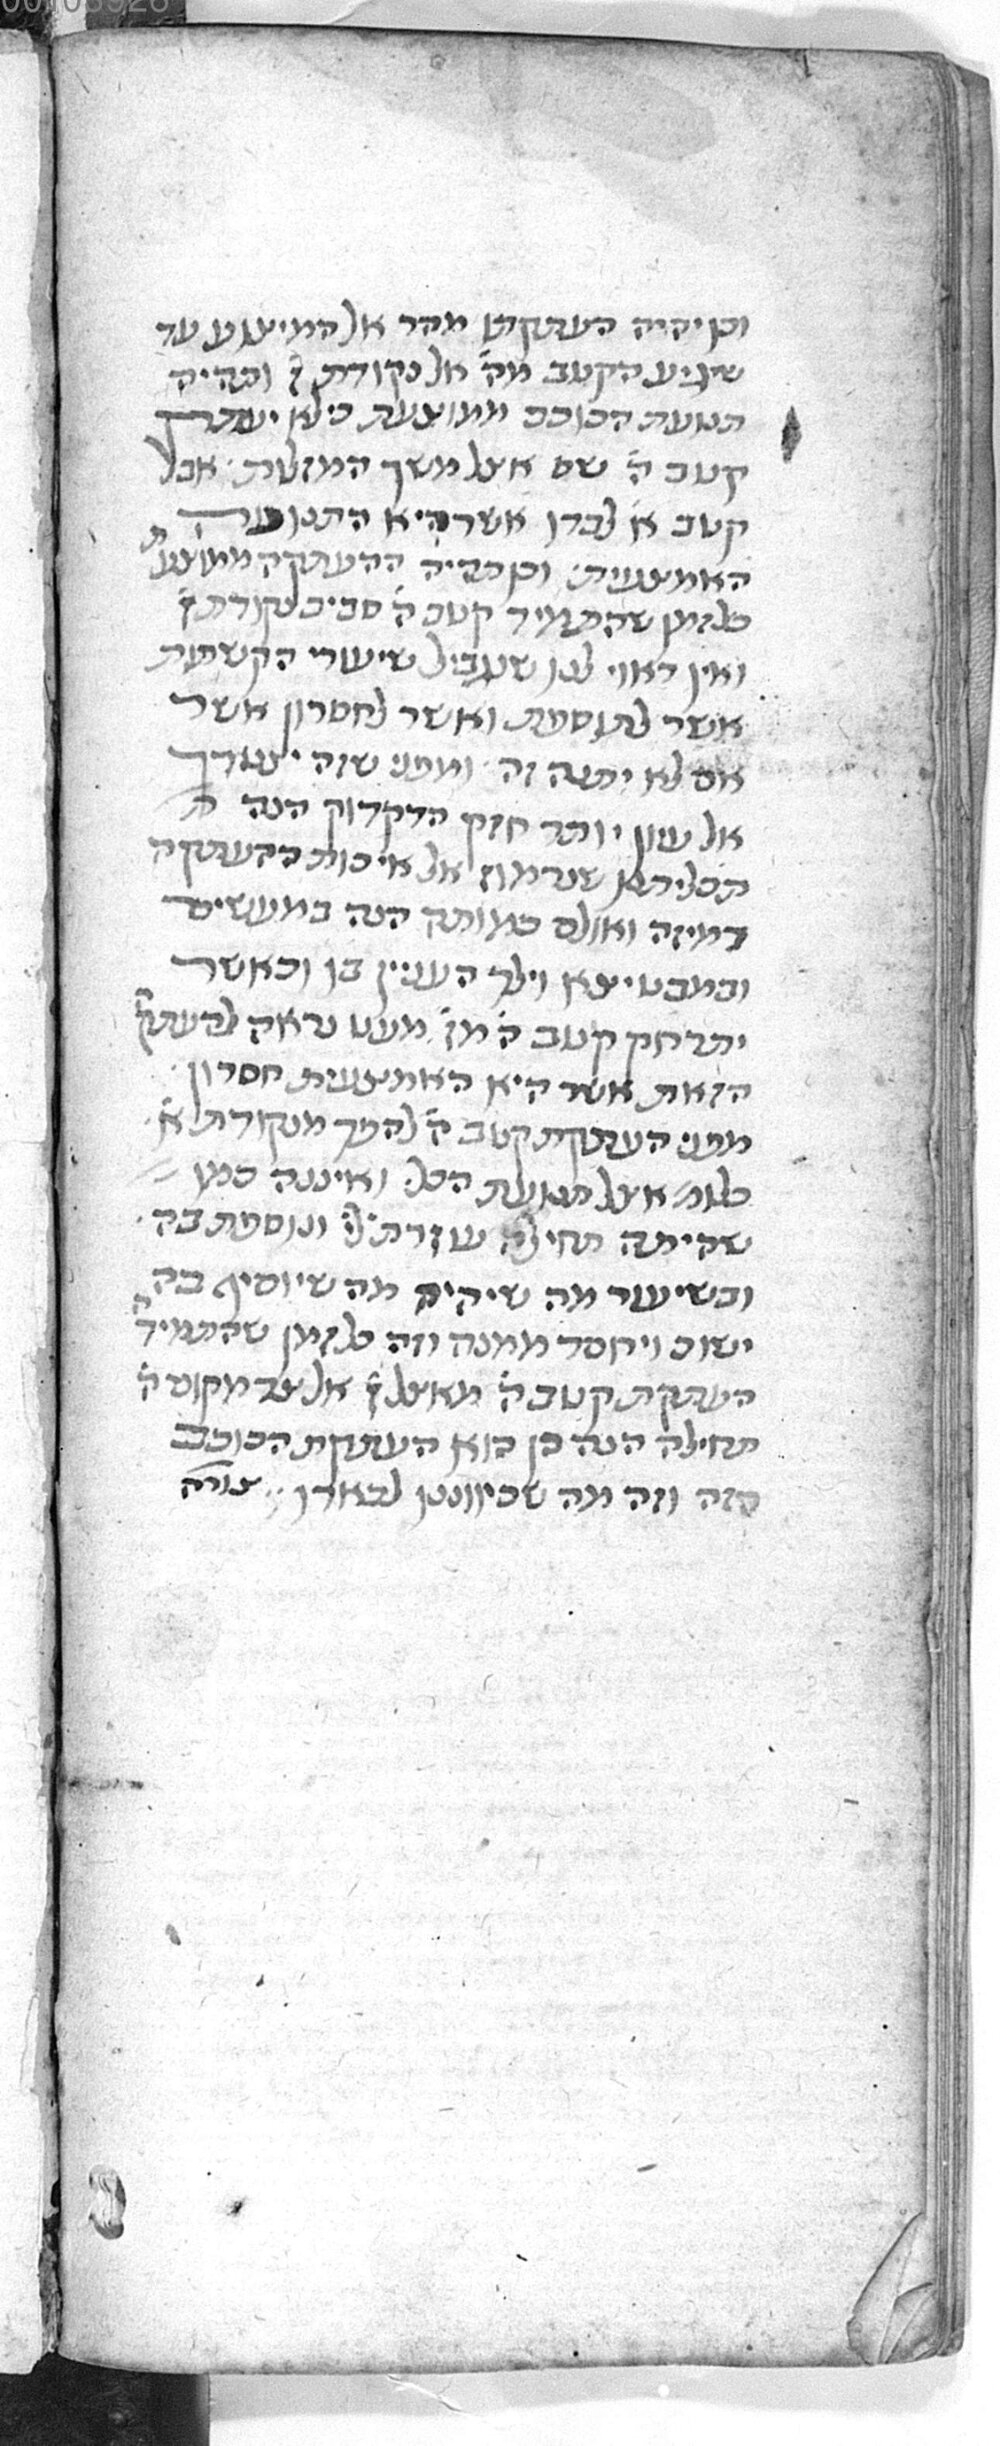 וכן יהיה העתקתו מהר אל המיצוע עד
שיגיע הקטב מה֗ אל נקודת ז֗ ותהיה
תנועת הכוכב ממוצעת כי לא יעתק
קטב ה֗ שם אצל משך המזלות אבל
קטב א֗ לבדו אשר היא התנועה
האמצעית וכן תהיה ההעתקה ממוצעת
כל זמן שהתמיד קטב ה֗ סביב נקודת ז֗
ואין ראוי לנו שנגביל שיעורי הקשתות
אשר לתוספת ואשר לחסרון אשר
אם לא יתנה זה ומפני שזה יצטרך
אל עיון יותר חזק הדקדוק הנה
תכליתנו שנרמוז אל איכות ההעתקה
במיזה ואולם כמותה הנה במעשים
ובמבטי יצא וילך העניין בו וכאשר
יתרחק קטב ה֗ מז֗ מעט נראה להעתקה
הזאת אשר היא האמצעית חסרון
מפני העתקת קטב ה֗ להפך מנקודת א֗
כלות אצל תנועת הכל ואיננה כמו
שהיתה תחילה עוזרת לו ונוספת בה
ובשיעור מה שיהיה מה שיוסיף בה
ישוב ויחסר ממנה וזה כל זמן שהתמיד
העתקת קטב ה֗ מאצל ז֗ אל צד מקום ה֗
תחילה הנה כן הוא העתקת הכוכב
הזה וזה מה שכיווננו לבארו צורה